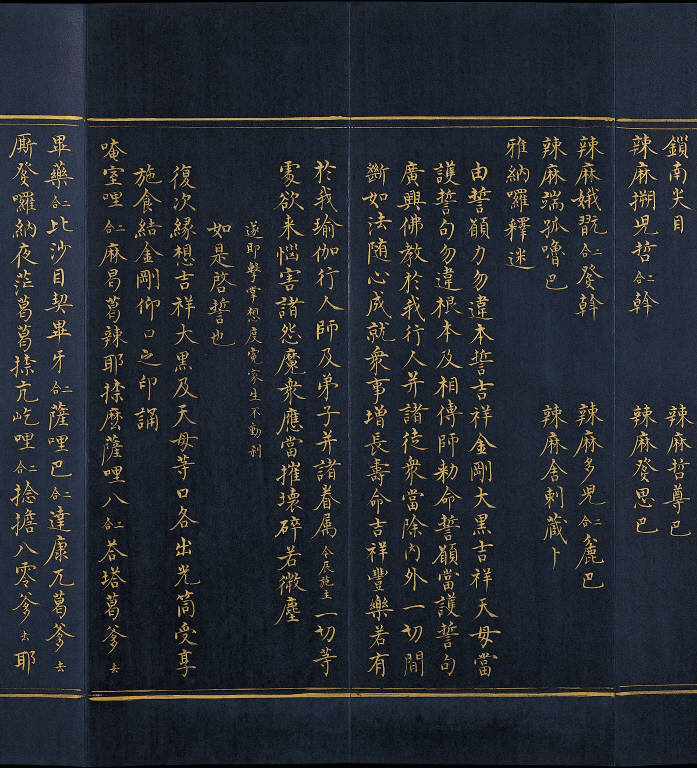 鎖南尖目　辣麻哲尊巴
辣麻搠皃哲二合幹　辣麻發思巴
辣麻娥翫二合發幹　辣麻多皃二合麁巴
辣麻端孤嚕巴　辣麻舍剌藏卜
雅納囉釋迷
由誓願力勿違本誓吉祥金剛大黑吉祥天母當
護誓句勿違根本及相傳師勅命誓願當護誓句
廣興佛教於我行人并諸徒衆當除內外一切間
斷如法随心成就衆事增長壽命吉祥豐樂若有
於我瑜伽行人師及弟子并諸眷属今辰施主一切等
䖏欲来惱害諸怨魔衆應當摧壞碎若微塵
遂耶擊掌想度寃家生不動刹
如是啓誓也
復次緣想吉祥大黑及天母等口各出光筒受享
施食結金剛仰口之印誦
唵室哩二合麻曷葛辣耶揉麽薩哩八二合荅塔葛爹去
畢藥二合比沙目契畢牙二合薩哩巴二合達康兀葛爹去
厮發囉納夜茫葛葛揉亢屹哩二合捻擔八零爹去耶